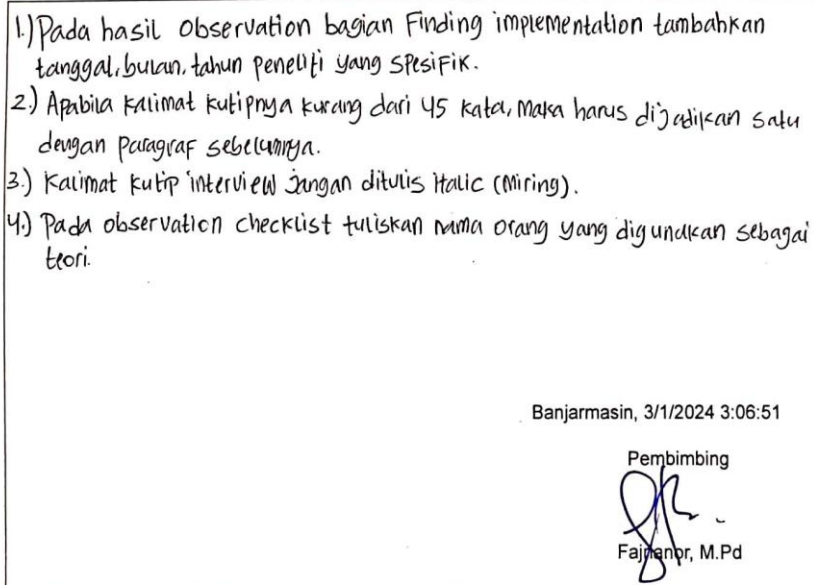 1.) Pada hasil observation bagian Finding implementation tambahkan
tanggal, bulan, tahun peneliti yang spesifik.
2.) Apabila kalimat kutipnya kurang dari 45 kata, maka harus dijadikan satu
dengan paragraf sebelumnya.
3.) Kalimat kutip interview jangan ditulis italic (miring).
4.) Pada observation checklist tuliskan nama orang yang digunakan sebagai
teori.
Banjarmasin, 3/1/2024 3:06:51
Pembimbing
M.Pd